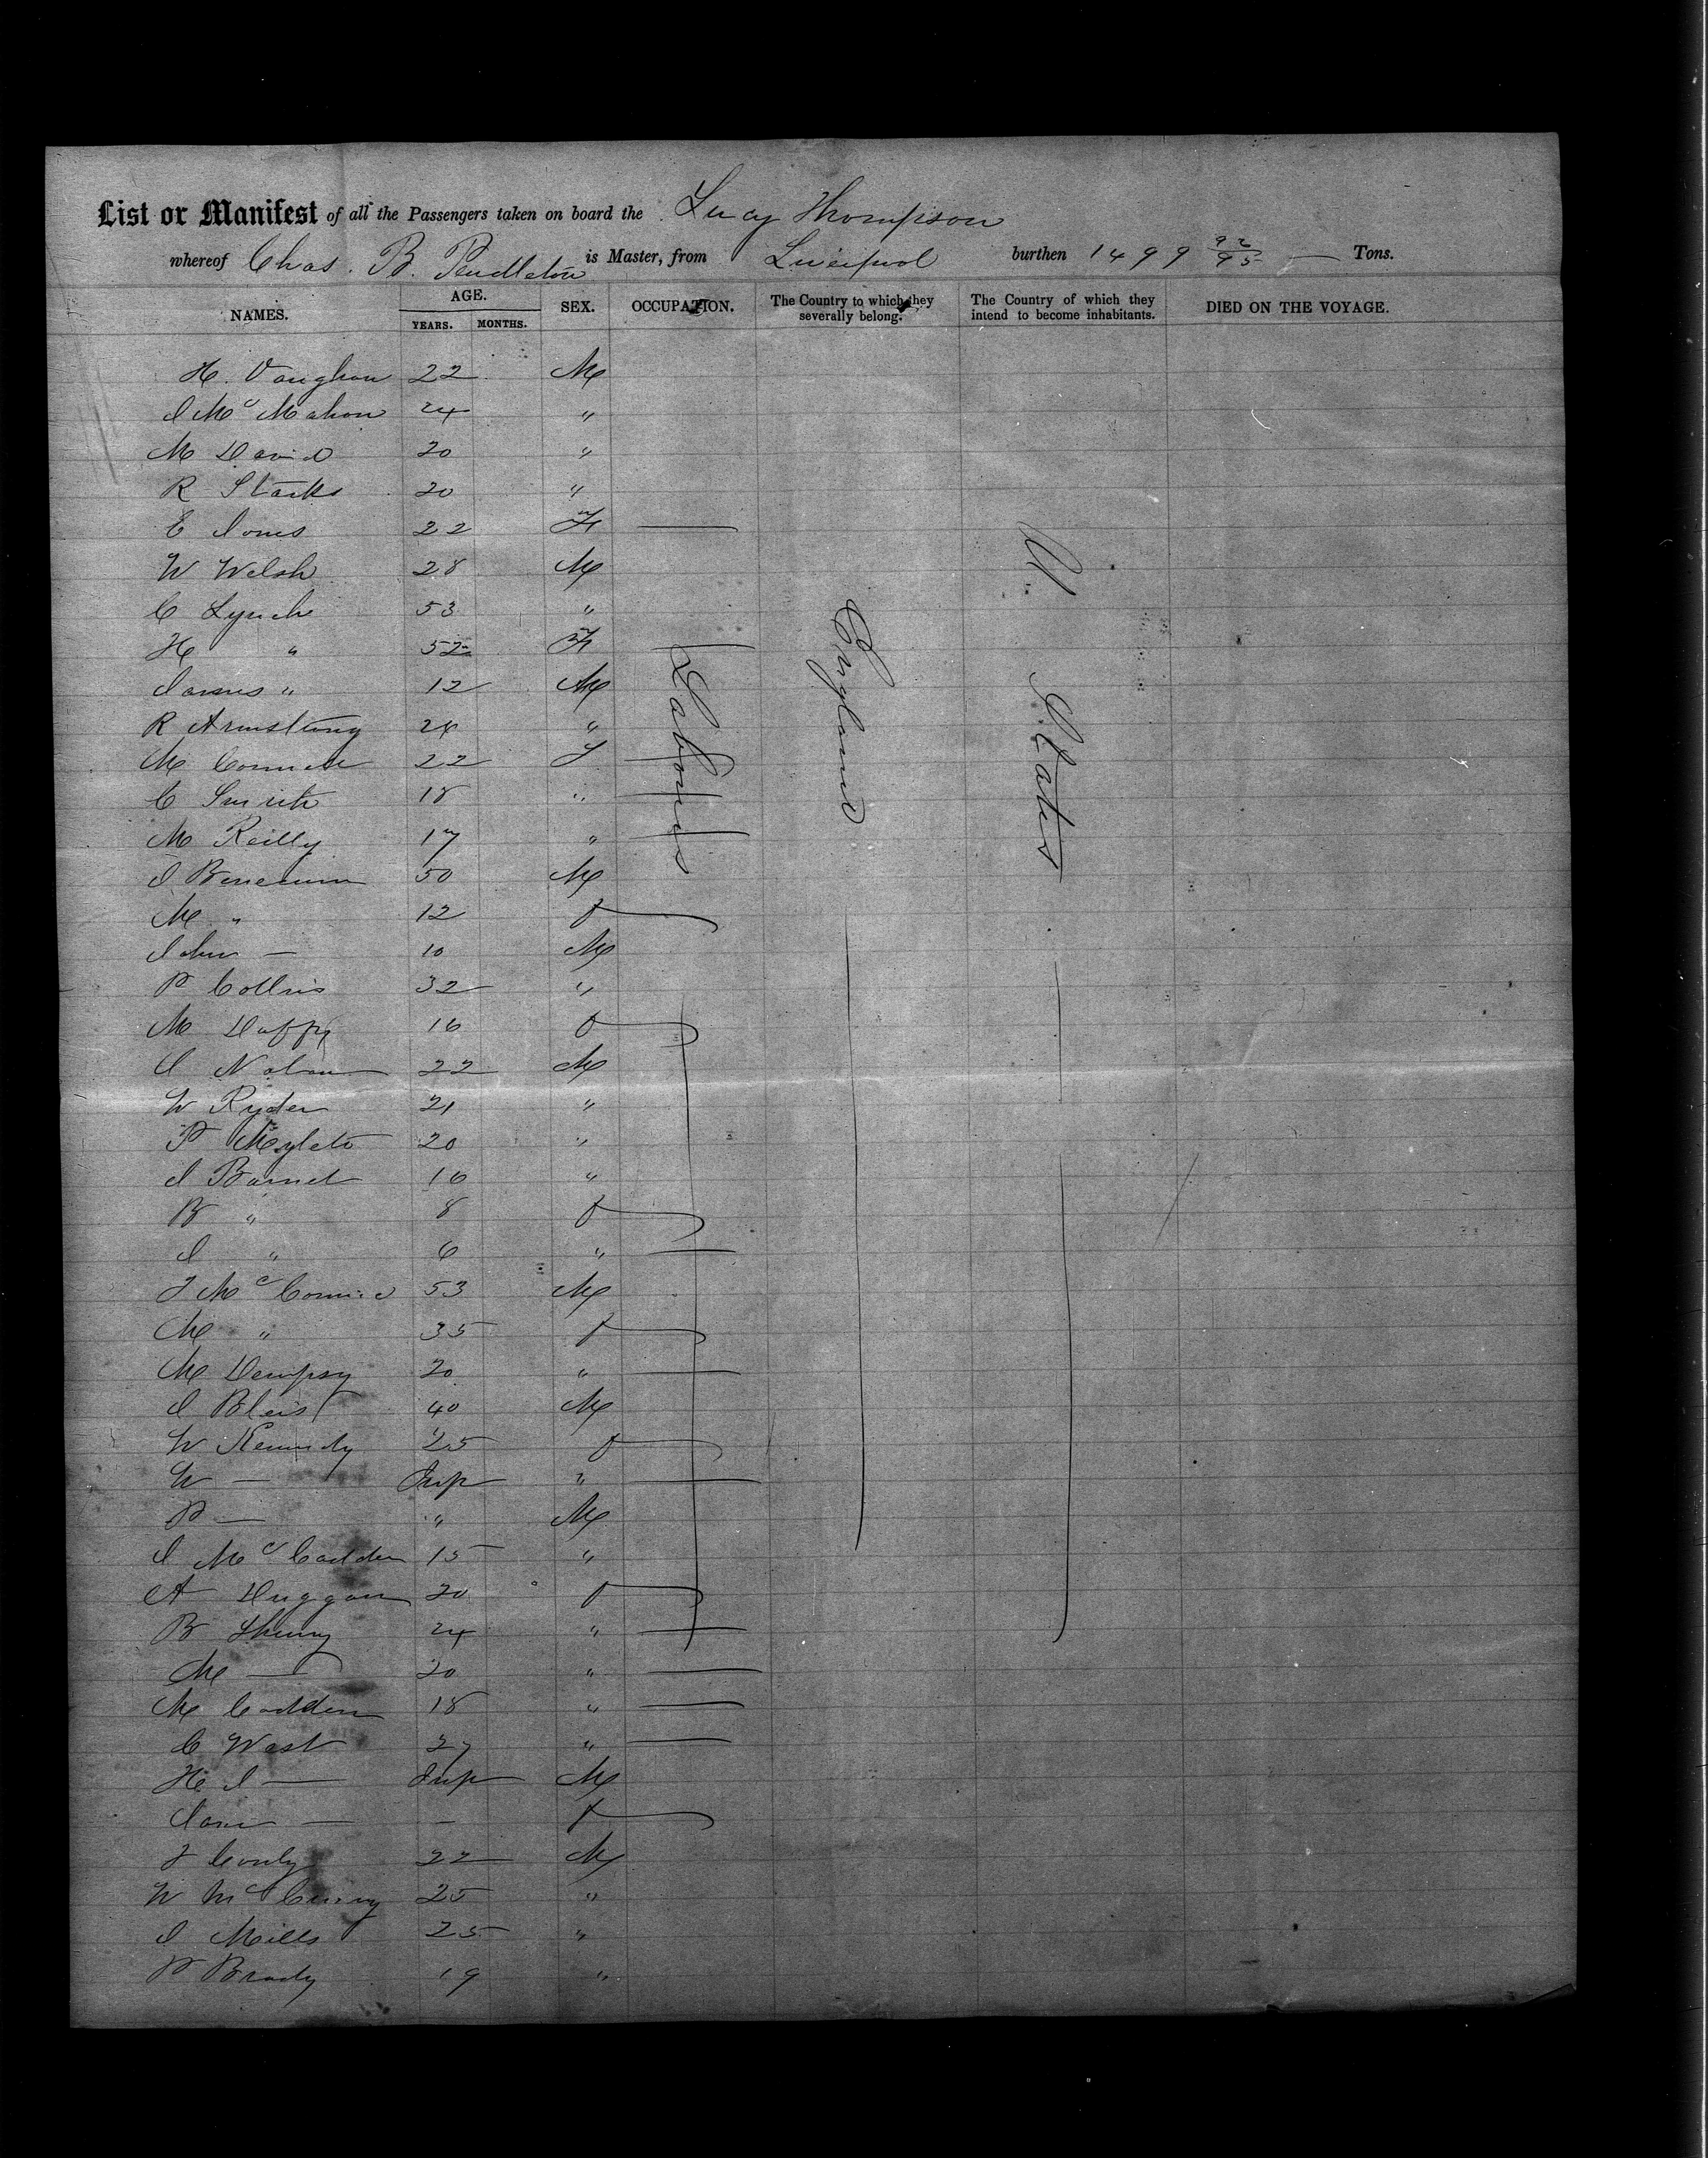 List or Manifest of all the Passengers taken on board the Lucy Thompson
whereof Chas. B. Pendleton is Master, from Liverpool burthen 1499 92/95 — Tons.
NAMES. AGE. YEARS. MONTHS. SEX. OCCUPATION. The Country to which they severally belong. The Country of which they intend to become inhabitants. DIED ON THE VOYAGE.
H. Vaughan 22 M
J Mc Mahon 24 "
M David 20 "
R Starks 20 "
E Jones 22 F —
W Welsh 28 M
C Lynch 53 "
H " 52 F —
James " 12 M
R Armstrong 24 "
M 22 F —
C Smith 18 " —
M Reilly 17 " —
Labourers
England
U States
J 50 M
M " 12 f
John — 10 M
P Collins 32 "
M Duffy 16 f
J Nolan 22 M
W Ryder 21 "
P 20 "
J Barnet 16 "
B " 8 f
J " 6 " —
J Mc 53 M
M " 35 f
M Dempsy 20 " —
J 40 M
W Kennedy 25 f
W — Inf " —
P — " M
J Mc Cadden 15 "
A Duggan 20 f
B 24 " —
M — 20 " —
M Cadden 18 " —
C West 27 " —
H J — Inf M
Jane — – f
J Conly 22 M
W Mc 25 "
J Mills 25 "
P Brady 19 "